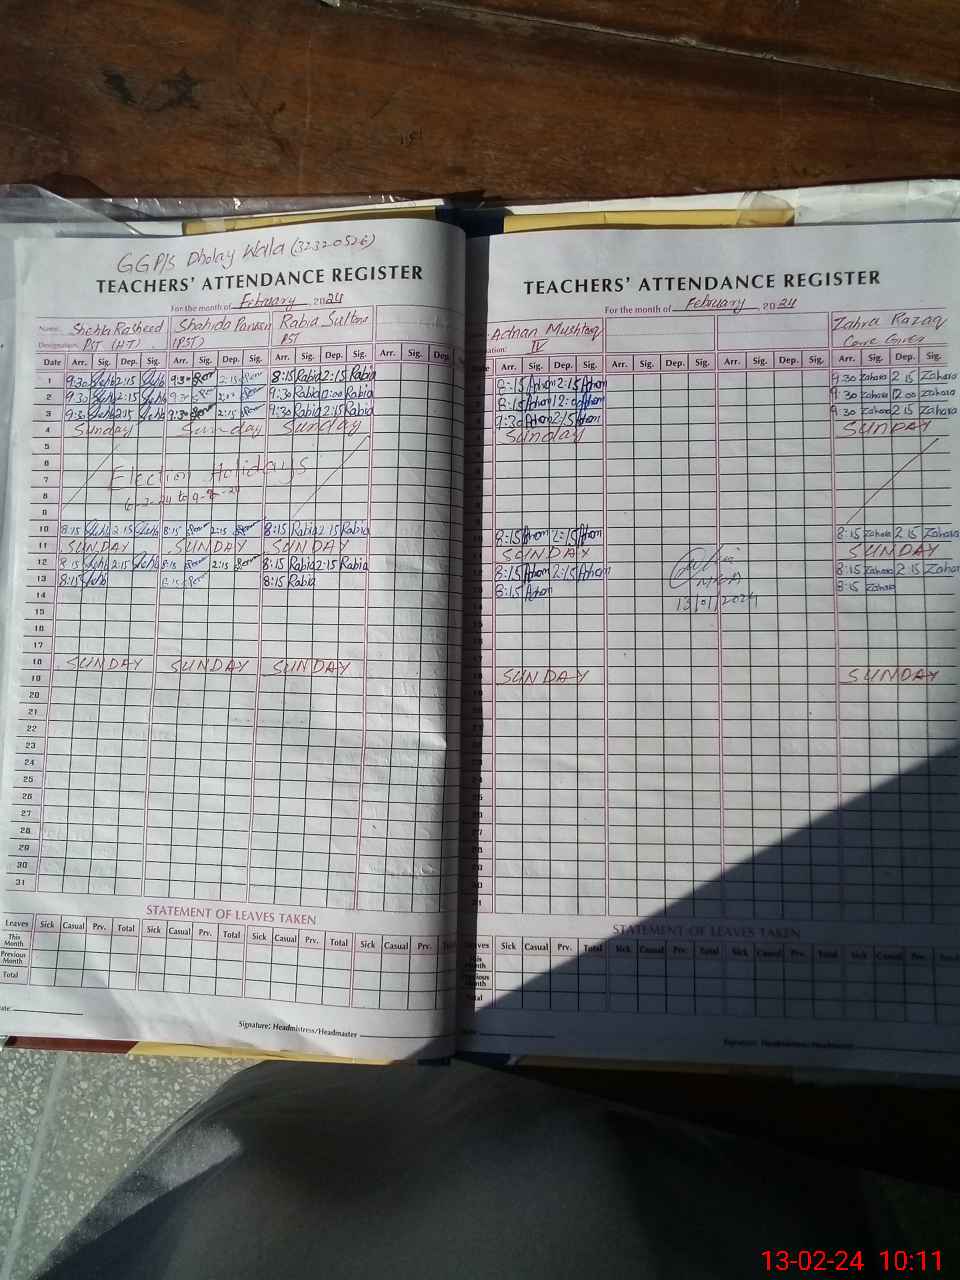 GGP/S Dholay Wala (32320526)
TEACHERS' ATTENDANCE REGISTER
For the month of February, 2024
Name: Shehla Rasheed Shahida Parveen Rabia Sultana
Designation: PST (HT) (PST) PST
Date Arr. Sig. Dep. Sig. Arr. Sig. Dep. Sig. Arr. Sig. Dep. Sig. Arr. Sig. Dep.
1 9:30 2:15 9:30 2:15 8:15 Rabia 2:15 Rabia
2 9:30 2:15 9:30 9:30 Rabia 12:00 Rabia
3 9:30 2:15 9:30 2:15 9:30 Rabia 2:15 Rabia
4 Sunday Sunday Sunday
5
6
7 Election Holidays
8
10 8:15 2:15 8:15 2:15 8:15 Rabia 2:15 Rabia
11 SUNDAY SUNDAY SUNDAY
12 8:15 2:15 8:15 2:15 8:15 Rabia 2:15 Rabia
13 8:15 8:15 Rabia
14
15
16
17
18 SUNDAY SUNDAY SUNDAY
19
20
21
22
23
24
25
26
27
28
29
30
31
STATEMENT OF LEAVES TAKEN
Leaves Sick Casual Prv. Total Sick Casual Prv. Total Sick Casual Prv. Total Sick Casual Prv.
This Month
Previous Month
Total
Signature: Headmistress/Headmaster
TEACHERS' ATTENDANCE REGISTER
For the month of February, 2024
Adnan Mushtaq Zahra Razaq
IV Care Giver
Arr. Sig. Dep. Sig. Arr. Sig. Dep. Sig. Arr. Sig. Dep. Sig. Arr. Sig. Dep. Sig.
8:15 2:15 9:30 Zahara 2:15 Zahara
8:15 12:00 9:30 Zahara 12:00 Zahara
9:30 2:15 9:30 Zahara 2:15 Zahara
Sunday SUNDAY
8:15 2:15 8:15 Zahara 2:15 Zahara
SUNDAY SUNDAY
8:15 2:15 8:15 Zahara 2:15 Zahara
8:15 8:15 Zahara
13/01/2024
SUNDAY SUNDAY
STATEMENT OF LEAVES TAKEN
Leaves Sick Casual Prv. Total Sick Casual Prv. Total Sick Casual Prv. Total Sick Casual Prv. Total
This Month
Previous Month
Total
Signature: Headmistress/Headmaster
13-02-24 10:11